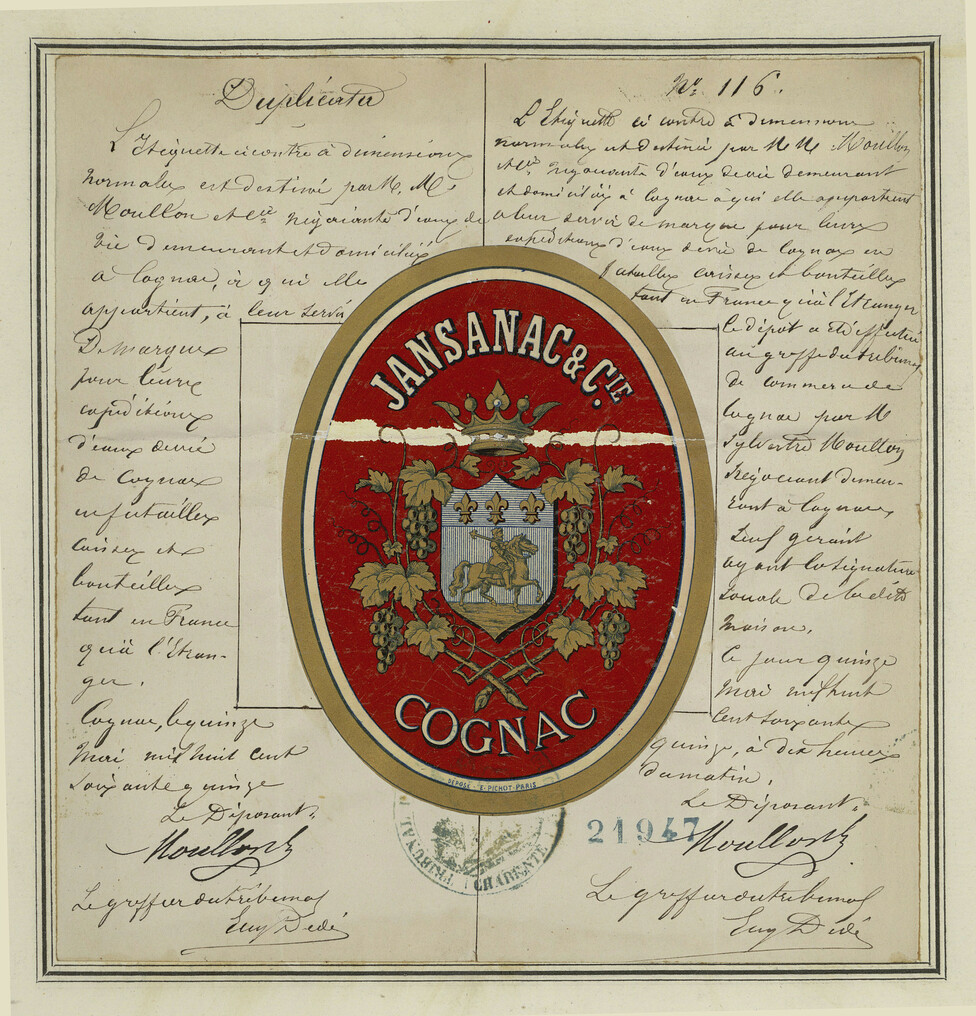 Duplicata
L'Etiquette ci contre à dimensions
normales est destiné par M. M.
Moullon et Cie Négociants d'eaux de
vie demeurant et domiciliés
a Cognac, à qui elle
appartient, à leur servir
De marques
pour leurs
expéditions
d'eaux de vie
de Cognac
en futailles
caisses et
bouteilles
tant en France
qu'à l'Etran-
ger.
Cognac, le quinze
Mai mil huit cent
soixante quinze
Le Déposant.
Moullon
Le greffier du tribunal
Eug Dédé
No 116.
L'Etiquette ci contre à dimensions
normales est destiné par M M. Moullon
et Cie négociants d'eaux de vie demeurant
et domiciliés à Cognac à qui elle appartient
a leur servir de marque pour leurs
expéditions d'eaux de vie de Cognac en
futailles caisses et bouteilles
tant en France qu'à l'Etranger
Le dépôt a été effectué
au greffe du tribunal
de commerce de
Cognac par M
Sylvestre Moullon
Négociant demeu-
rant à Cognac
seul gérant
ayant la signature
sociale de la dite
maison.
Ce jour quinze
Mai mil huit
cent soixante
quinze, à dix heures
du matin.
Le Déposant.
Moullon
Le greffier du tribunal
Eug Dédé
JANSANAC & CIE.
COGNAC
DÉPOSÉ E. PICHOT. PARIS
TRIBUNAL
CHARENTE
21947